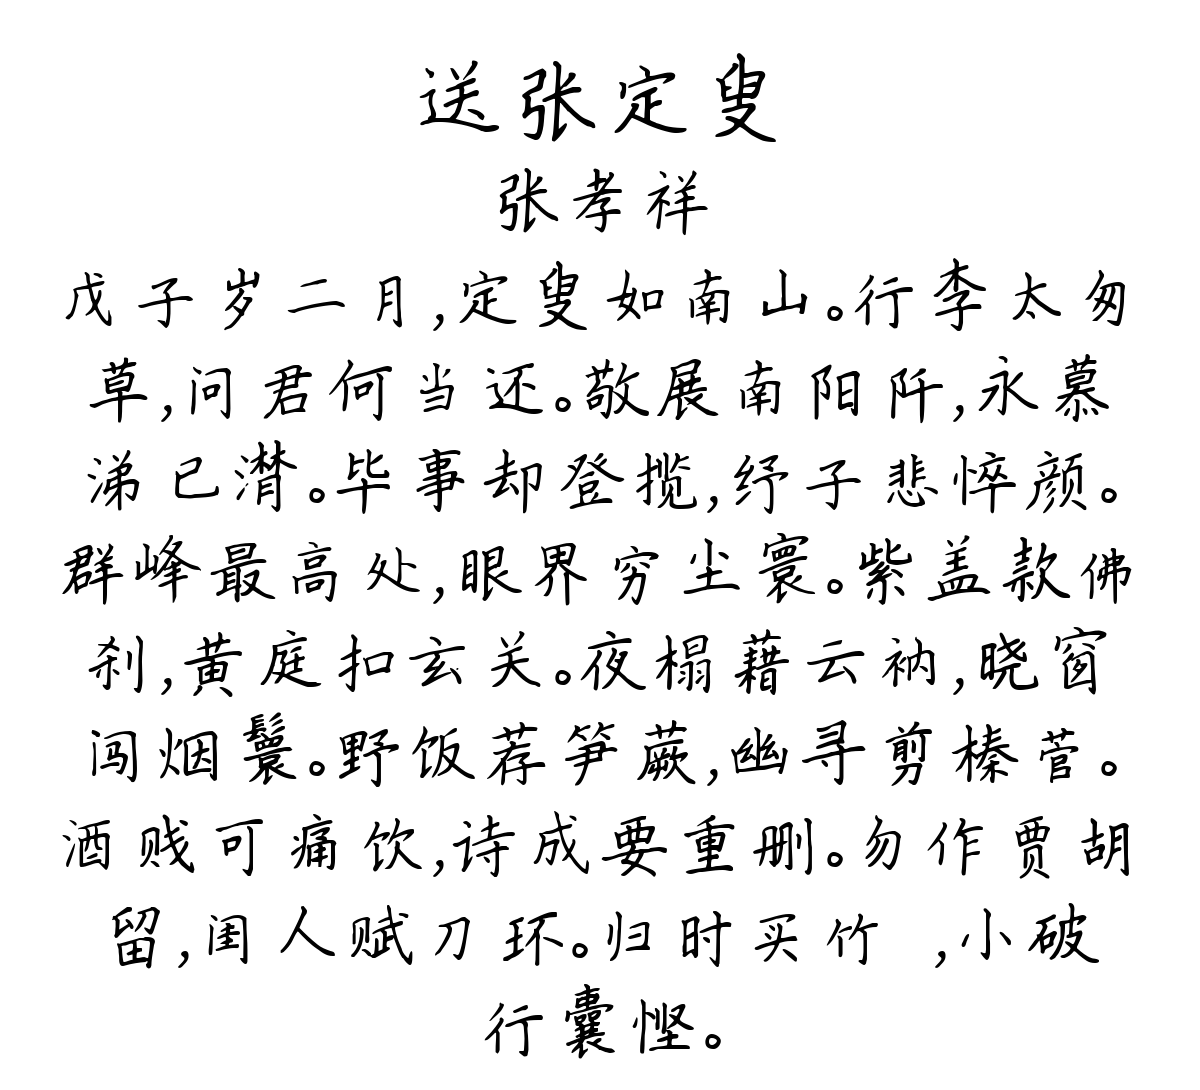 送张定叟
张孝祥
戊子岁二月,定叟如南山。行李太匆
草,问君何当还。敬展南阳阡,永慕
涕已潸。毕事却登揽,纾子悲悴颜。
群峰最高处,眼界穷尘寰。紫盖款佛
刹,黄庭扣玄关。夜榻藉云衲,晓窗
闯烟鬟。野饭荐笋蕨,幽寻剪榛菅。
酒贱可痛饮,诗成要重删。勿作贾胡
留,闺人赋刀环。归时买竹 ,小破
行囊悭。